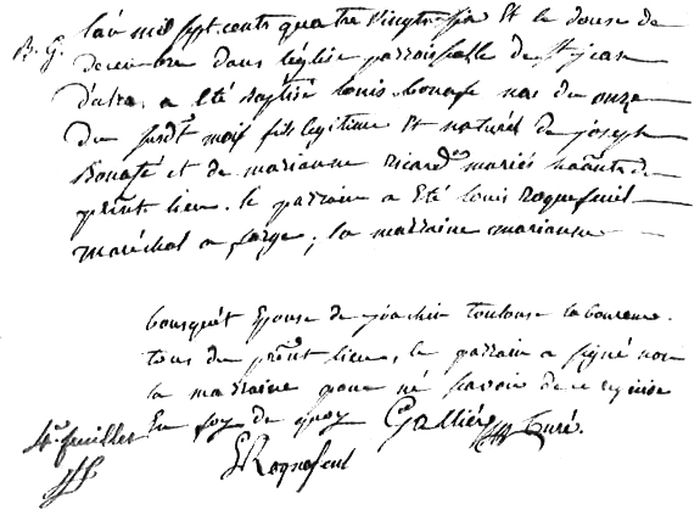 B. G. L'an mil sept cents quatre vingts six Et le douse de
decembre dans léglise parroissialle de St jean
a été baptisé louis bonafe nai du onze
du susdt mois fils legitime Et naturel de joseph
Bonafé et de marianne ricard mariés hants de
présnt lieu. le parrain a Eté louis Roquefeuil
maréchal a forge; la marraine marianne
bousquét Epouse de joachin toulouse laboureur.
tous du présnt lieu, le parrain a signé non
la marraine pour né savoir de ce requise
En foy de quoy Galtiér Curé.
4e. feuillet
Roquefeul